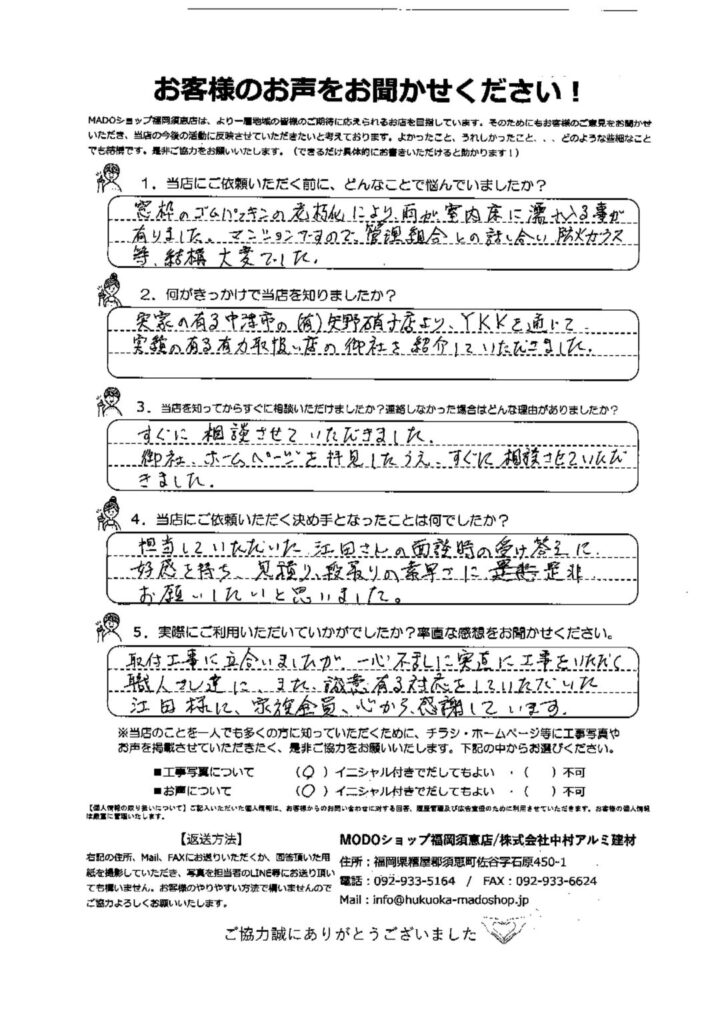 お客様のお声をお聞かせください！
MADOショップ福岡須恵店は、より一層地域の皆様のご期待に応えられるお店を目指しています。そのためにもお客様のご意見をお聞かせ
いただき、当店の今後の活動に反映させていただきたいと考えております。よかったこと、うれしかったこと、、、どのような些細なこと
でも結構です。是非ご協力をお願いいたします。（できるだけ具体的にお書きいただけると助かります！）
1．当店にご依頼いただく前に、どんなことで悩んでいましたか？
窓枠のゴムパッキンの老朽化により、雨が室内床に濡れ入る事が
有りました。マンションですので、管理組合との話し合い、防火ガラス
等、結構大変でした。
2．何がきっかけで当店を知りましたか？
実家の有る中津市の(有)矢野硝子店より、YKKを通じて
実績の有る有力取扱い店の御社を紹介していただきました。
3．当店を知ってからすぐに相談いただけましたか？連絡しなかった場合はどんな理由がありましたか？
すぐに相談させていただきました。
御社、ホームページを拝見したうえ、すぐに相談させていただ
きました。
4．当店にご依頼いただく決め手となったことは何でしたか？
担当していただいた江田さんの面談時の受け答えに
好感を持ち、見積り、段取りの素早さに 是非
お願いしたいと思いました。
5．実際にご利用いただいていかがでしたか？率直な感想をお聞かせください。
取付工事に立合いましたが、一心不乱に実直に工事をいただく
職人さん達に、また、誠意有る対応をしていただいた
江田様に、家族全員、心から感謝しています。
※当店のことを一人でも多くの方に知っていただくために、チラシ・ホームページ等に工事写真や
お声を掲載させていただきたく、是非ご協力をお願いいたします。下記の中からお選びください。
■工事写真について （○）イニシャル付きでだしてもよい ・（ ）不可
■お声について （○）イニシャル付きでだしてもよい ・（ ）不可
【個人情報の取り扱いについて】ご記入いただいた個人情報は、お客様からのお問い合わせに対する回答、履歴管理及び広告宣伝のために利用させていただきます。お客様の個人情報
は厳重に管理いたします。
【返送方法】
右記の住所、Mail、FAXにお送りいただくか、回答頂いた用
紙を撮影していただき、写真を担当者のLINE等にお送り頂い
ても構いません。お客様のやりやすい方法で構いませんので
ご協力よろしくお願いいたします。
MODOショップ福岡須恵店/株式会社中村アルミ建材
住所：福岡県糟屋郡須恵町佐谷字石原450-1
電話：092-933-5164 / FAX：092-933-6624
Mail：info@hukuoka-madoshop.jp
ご協力誠にありがとうございました